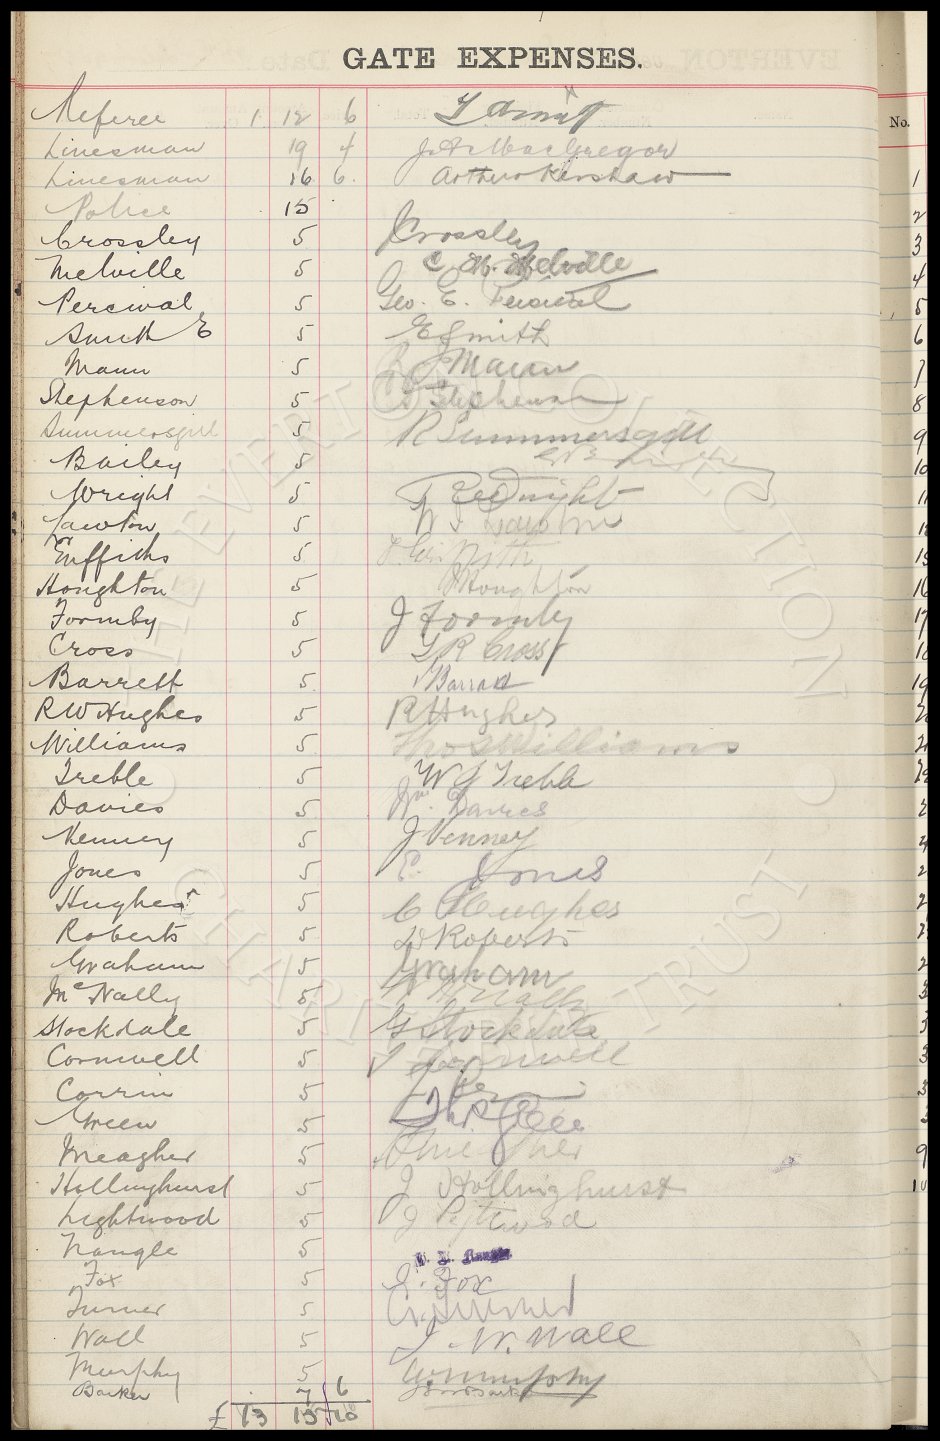 GATE EXPENSES.
No.
Referee 1 12 6
Linesman 19 4 J.A. MacGregor
Linesman 16 6. Arthur Kershaw
Police 15
Crossley 5 J Crossley
Melville 5 C. H. Melville
Percival 5 Geo. E. Percival
Smith E 5 E Smith
Mann 5 Mann
Stephenson 5 Stephenson
Summersgill 5 R Summersgill
Bailey 5
Wright 5 Wright
Lawton 5 W Lawton
Griffiths 5 Griffith
Houghton 5 Houghton
Formby 5 J Formby
Cross 5 G R Cross
Barrett 5 Barratt
R W Hughes 5 R Hughes
Williams 5 Thos Williams
Treble 5 W J Treble
Davies 5 Wm. Davies
Kenney 5 J Kenney
Jones 5 E. Jones
Hughes 5 C Hughes
Roberts 5 D Roberts
Graham 5 Graham
McNally 5 McNally
Stockdale 5 G Stockdale
Cornwell 5 Cornwell
Corrin 5
Green 5
Meagher 5
Hollinghurst 5 J Hollinghurst
Lightwood 5 J Lightwood
Nangle 5
Fox 5 J. Fox
Turner 5 Turner
Wall 5 J. W. Wall
Murphy 5 W Murphy
Barker 7 6 Barker
£ 13 15 10
THE EVERTON COLLECTION CHARITABLE TRUST